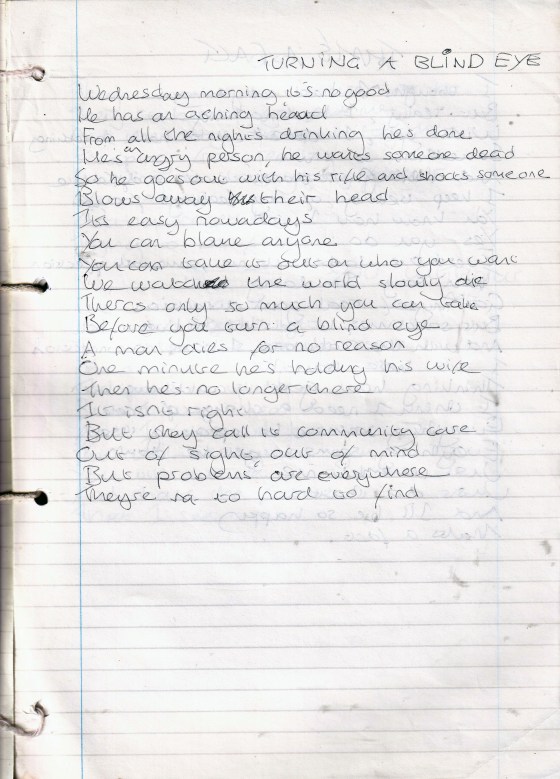 TURNING A BLIND EYE
Wednesday morning it's no good
He has an aching heaad
From all the nights drinking he's done
He's an angry person, he wants someone dead
So he goes out with his rifle and shoots someone
Blows away their head
It's easy nowadays
You can blame anyone
You can take it out on who you want
We watch the world slowly die
Theres only so much you can take
Before you turn a blind eye
A man dies for no reason
One minute he's holding his wife
Then he's no longer there
It isn't right
But they call it community care
Out of sight, out of mind
But problems are everywhere
They're to hard to find